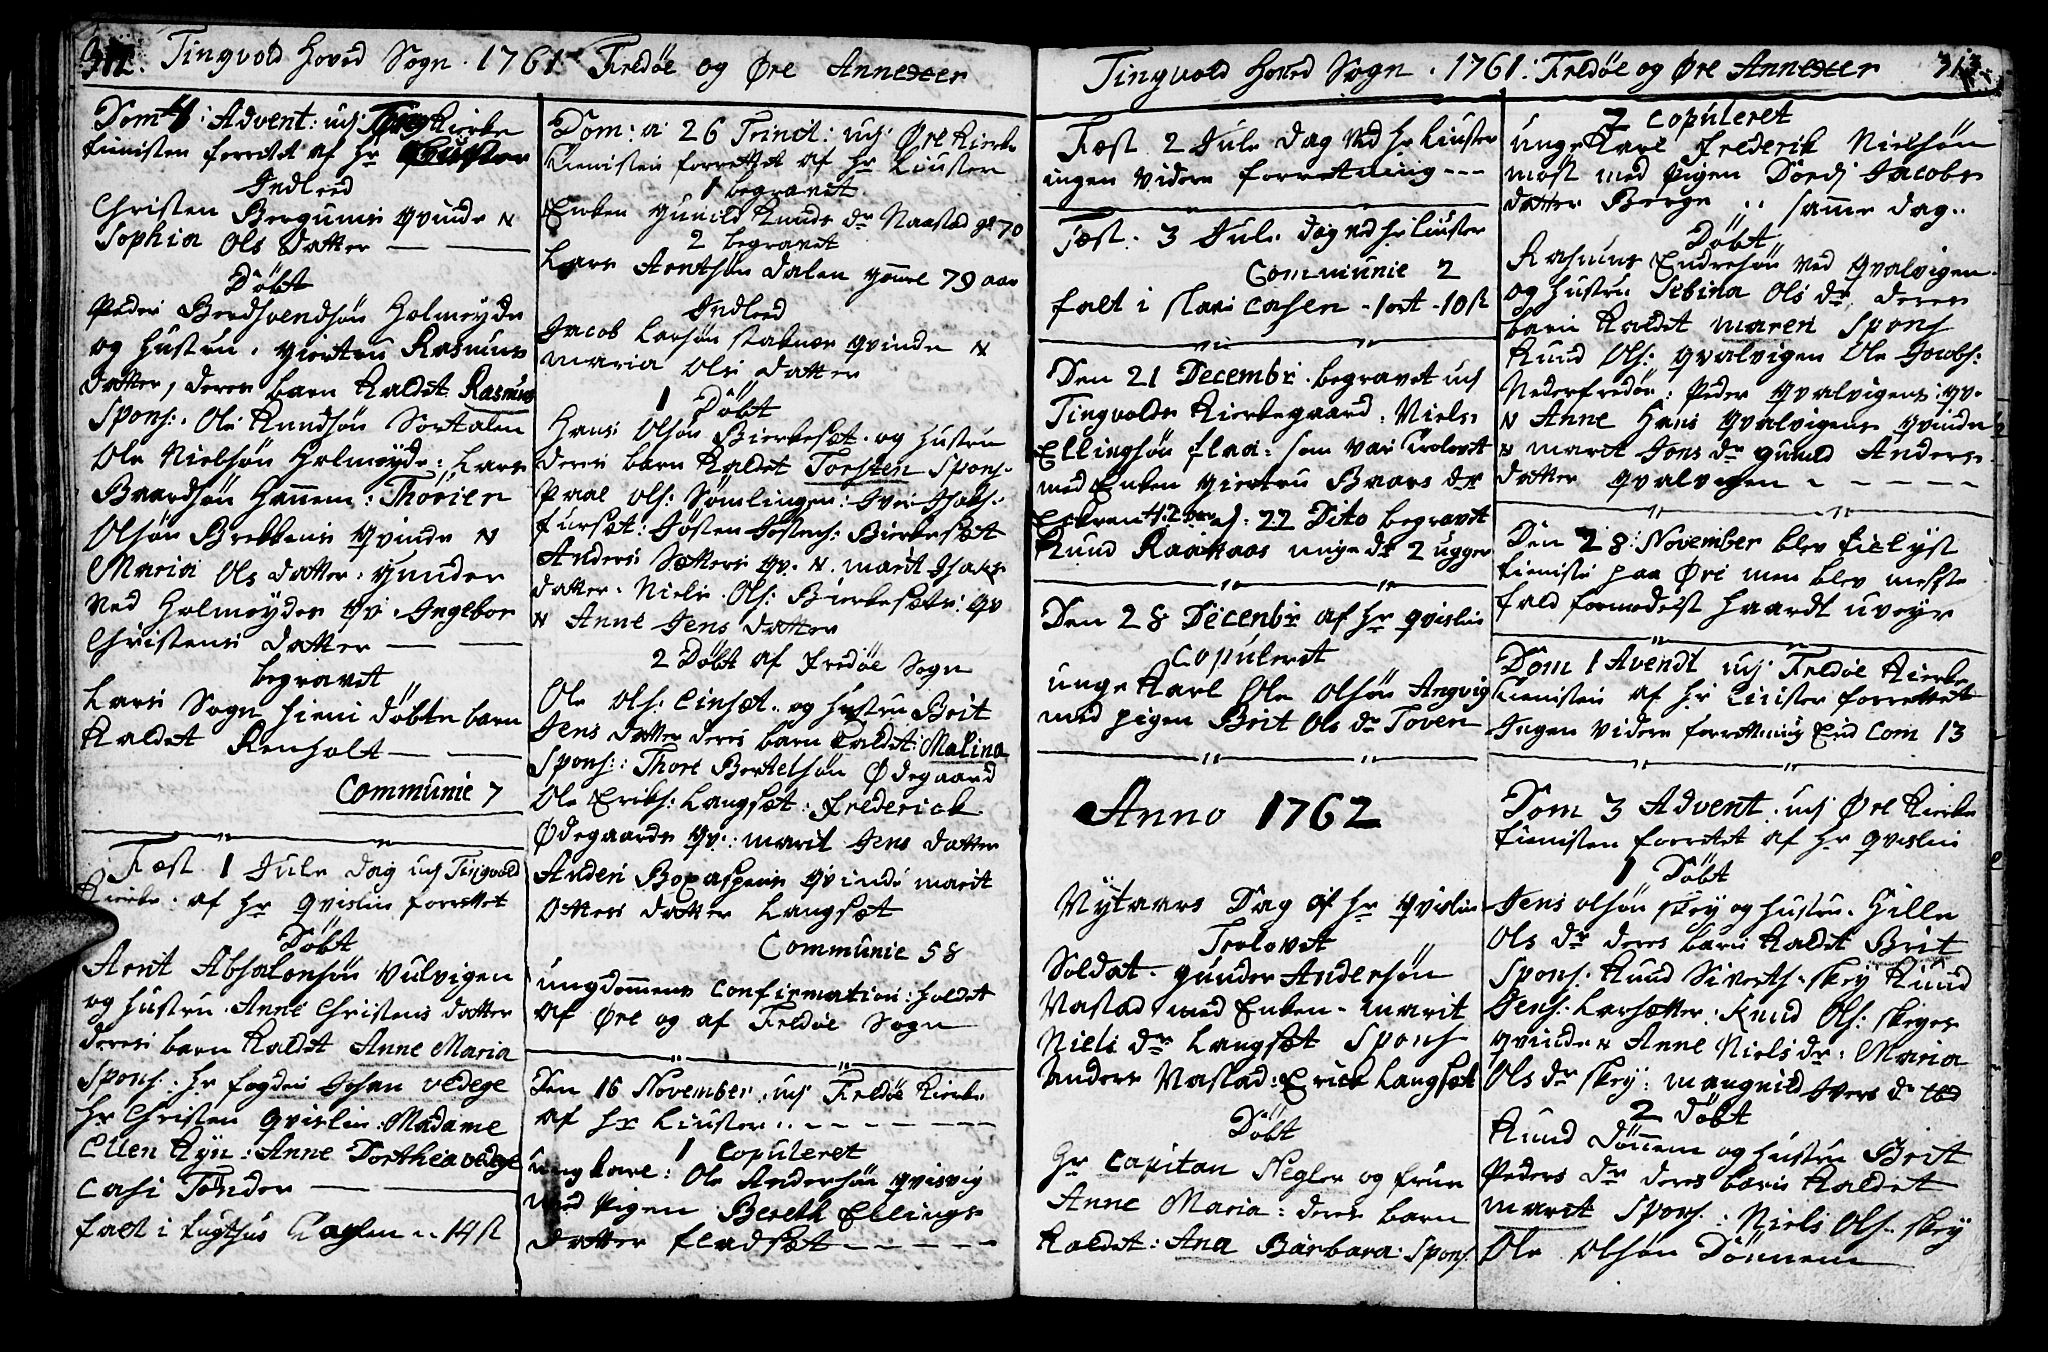 312. Tingvold Hoved Sogn. 1761 Fredøe og Øre Annexer
Dom 4 Advent: udj Ting Kirke
tienisten forrettet af Hr
Indleed
Christen Bergumi qvinde N
Sophia Ols Datter
Døbt
Peder Bendsvendsøn Holmeyde
og Hustru. giertru Rasmus
datter, deres barn Kaldet Rasmus
Spons: Ole Knudsøn Sortalen
Ole Nielsøn Holmøyde: Lars
Baardsøn Hannem: Thorier
Olsøn Brekkens Qvinde N
Maria Ols datter: gunder
Ved Holmøydes qv. Ingebor
Christens Datter
begravet
Lars Sogn hiem døbte barn
Kaldet Renholt
Communie 7
Fæst 1 Jule Dag udj Tingvold
Kirke. af Hr Qvislin forrettet
Døbt
Arnt Absalonsøn Vulvigen
og Hustru. Anne Christens datter
deres barn Kaldet Anne Maria
Spons. Hr fogden Johan vedege
Hr Christen Qvislin: Madame
Ellen Ryn: Anne Dorthea vedege
Casi Tønder
falt i tugthus Casen .. 14 ß
Dom: a 26 Trinit: udj Øre Kirke
tienisten forrettet af Hr Liuster
1 begravet
Enken gunild Knuds dr Naastad gl 70
2 begravet
Lars Arntsøn dalen gaml 79 aar
Indleed
Jacob Larsøn stabnæs qvinde N
Maria Ols datter
1 Døbt
Hans Olsøn Bierkesæt og Hustru
deres barn Kaldet Torsten Spons.
Paal Ols: Sømlingen: Iver Isaks:
fursæt: Josten Jostens: Bierkesæt
Anders Sætters qv. N. marit Isaks
datter. Niels Ols: Bierkesæts: qv
N Anne Jens datter
2 Døbt af Fredøe Sogn
Ole Ols: Einset .. og Hustru Brit
Jens datter deres barn Kaldet Malina
Spons:: Thore Bertelsøn Ødegaard
Ole Eriks: Langsæt: Frederick
Ødegaards qv.: marit Jens datter
Anders Boxaspens qvinde marit
Ottes datter Langsæt
Communie 58
ungdommens Confirmation: holdet
af Øre og af Fredøe Sogn
Den 16 November. udj Fredøe Kirke
af Hr Liuster
1 Copuleret
ung karl: Ole Andersøn qvisvig
med Pigen Bereth Ellings
datter fladsæt
Tingvold Hoved Sogn. 1761: Fredøe og Øre Annexer 313
Fæst 2 Jule Dag ved Hr Liuster
ingen videre forretning
Fæst. 3 Jule dag ved Hr Liuster
Communie 2
falt i slavi Casen - 1 ort - 10 ß
Den 21 Decembr. begravet udj
Tingvolds Kirkegaard. Niels
Ellingsøn flaa: som var trolovet
med Enken giertru Baars dr
22 Dito begravet
Knud Raakaas unge dr 2 ugger
Den 28 Decenbr af Hr qvislin
Copuleret
unge Karl Ole Olsøn Angvig
med pigen Brit Ols dr Toven
Anno 1762
Nytaars Dag af Hr qvislin
Trolovet
Soldat. gunder Andersøn
Vastad med Enken. marit
Niels dr Langsæt Spons
Anders Vastad: Erick Langsæt
Døbt
Hr Capitan Negler og frue
Anne Maria: deres barn
Kaldet: Ana Barbara Spons.
2 Copuleret
unge Karl Frederik Nielsøn
møst med Pigen Dordj Jacobs
datter Berge .. samme dag..
Døbt
Rasmus Endresøn ved Qvalvigen
og Hustru Sebina Ols dr. deres
barn Kaldet maren Spons
Knud Ols: qvalvigen Ole Jacobs:
Nederfredøe: Peder Qvalvigens: qv.
N Anne Hans Qvalvigens qvinde
N marit Jons dr gunild Anders
datter Qvalvigen
Den 28 November blev tielyst
tieniste paa Øre men blev messe
fald formedelst haardt uveyr
Dom 1 Avendt udj Fredøe Kirke
tienisten af Hr Liuster forrettet
Ingen videre forretning End Com 13
Dom 3 Advent. udj Øre Kirke
tienisten forrettet af Hr Qvislin
1 Døbt
Jens Olsøn Skey og Hustru. Hille
Ols dr deres barn Kaldet Brit
Spons: Knud Siverts. Skey Knud
Jens: Larsætter: Knud Ols: Skeyes
qvinde N Anne Niels dr: Maria
Ols dr Skey: mangnild Ivers dr ibd
2 Døbt
Knud Dønnem og Hustru Brit
Peders dr deres barn Kaldet
marit Spons: Niels Ols. Skey
Ole Olsøn Dønnem